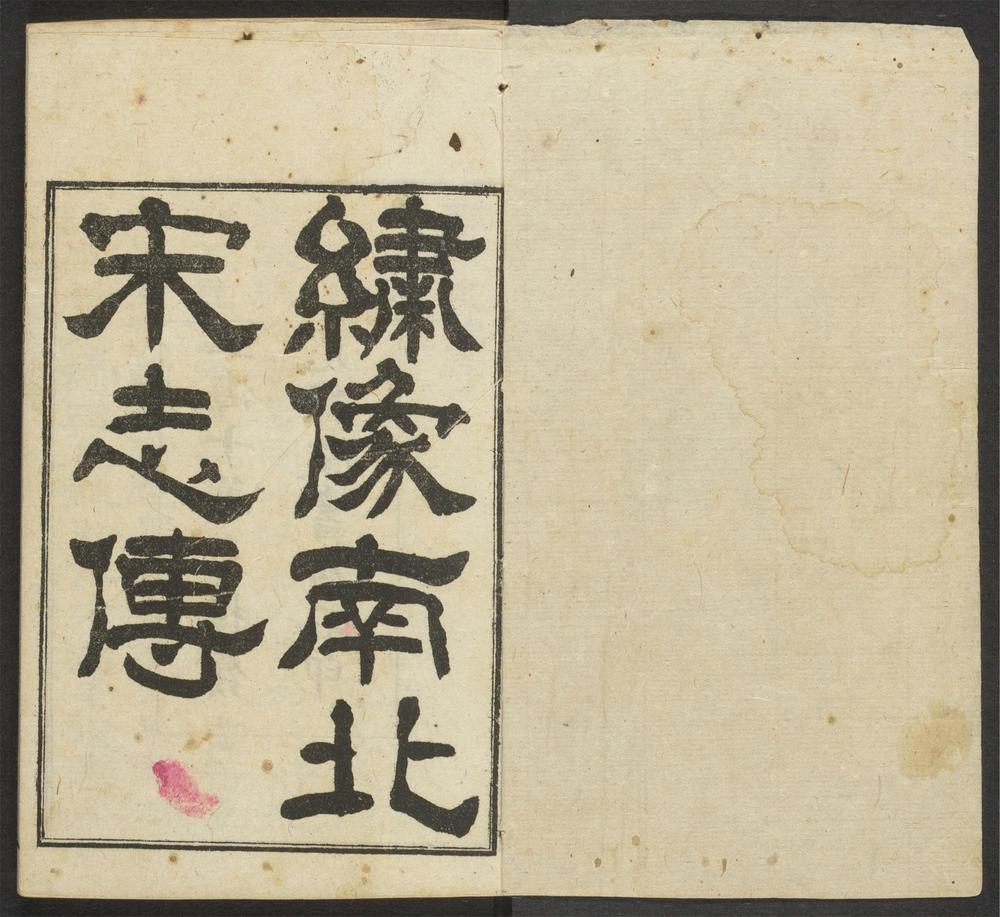 繡像南北
宋志傳